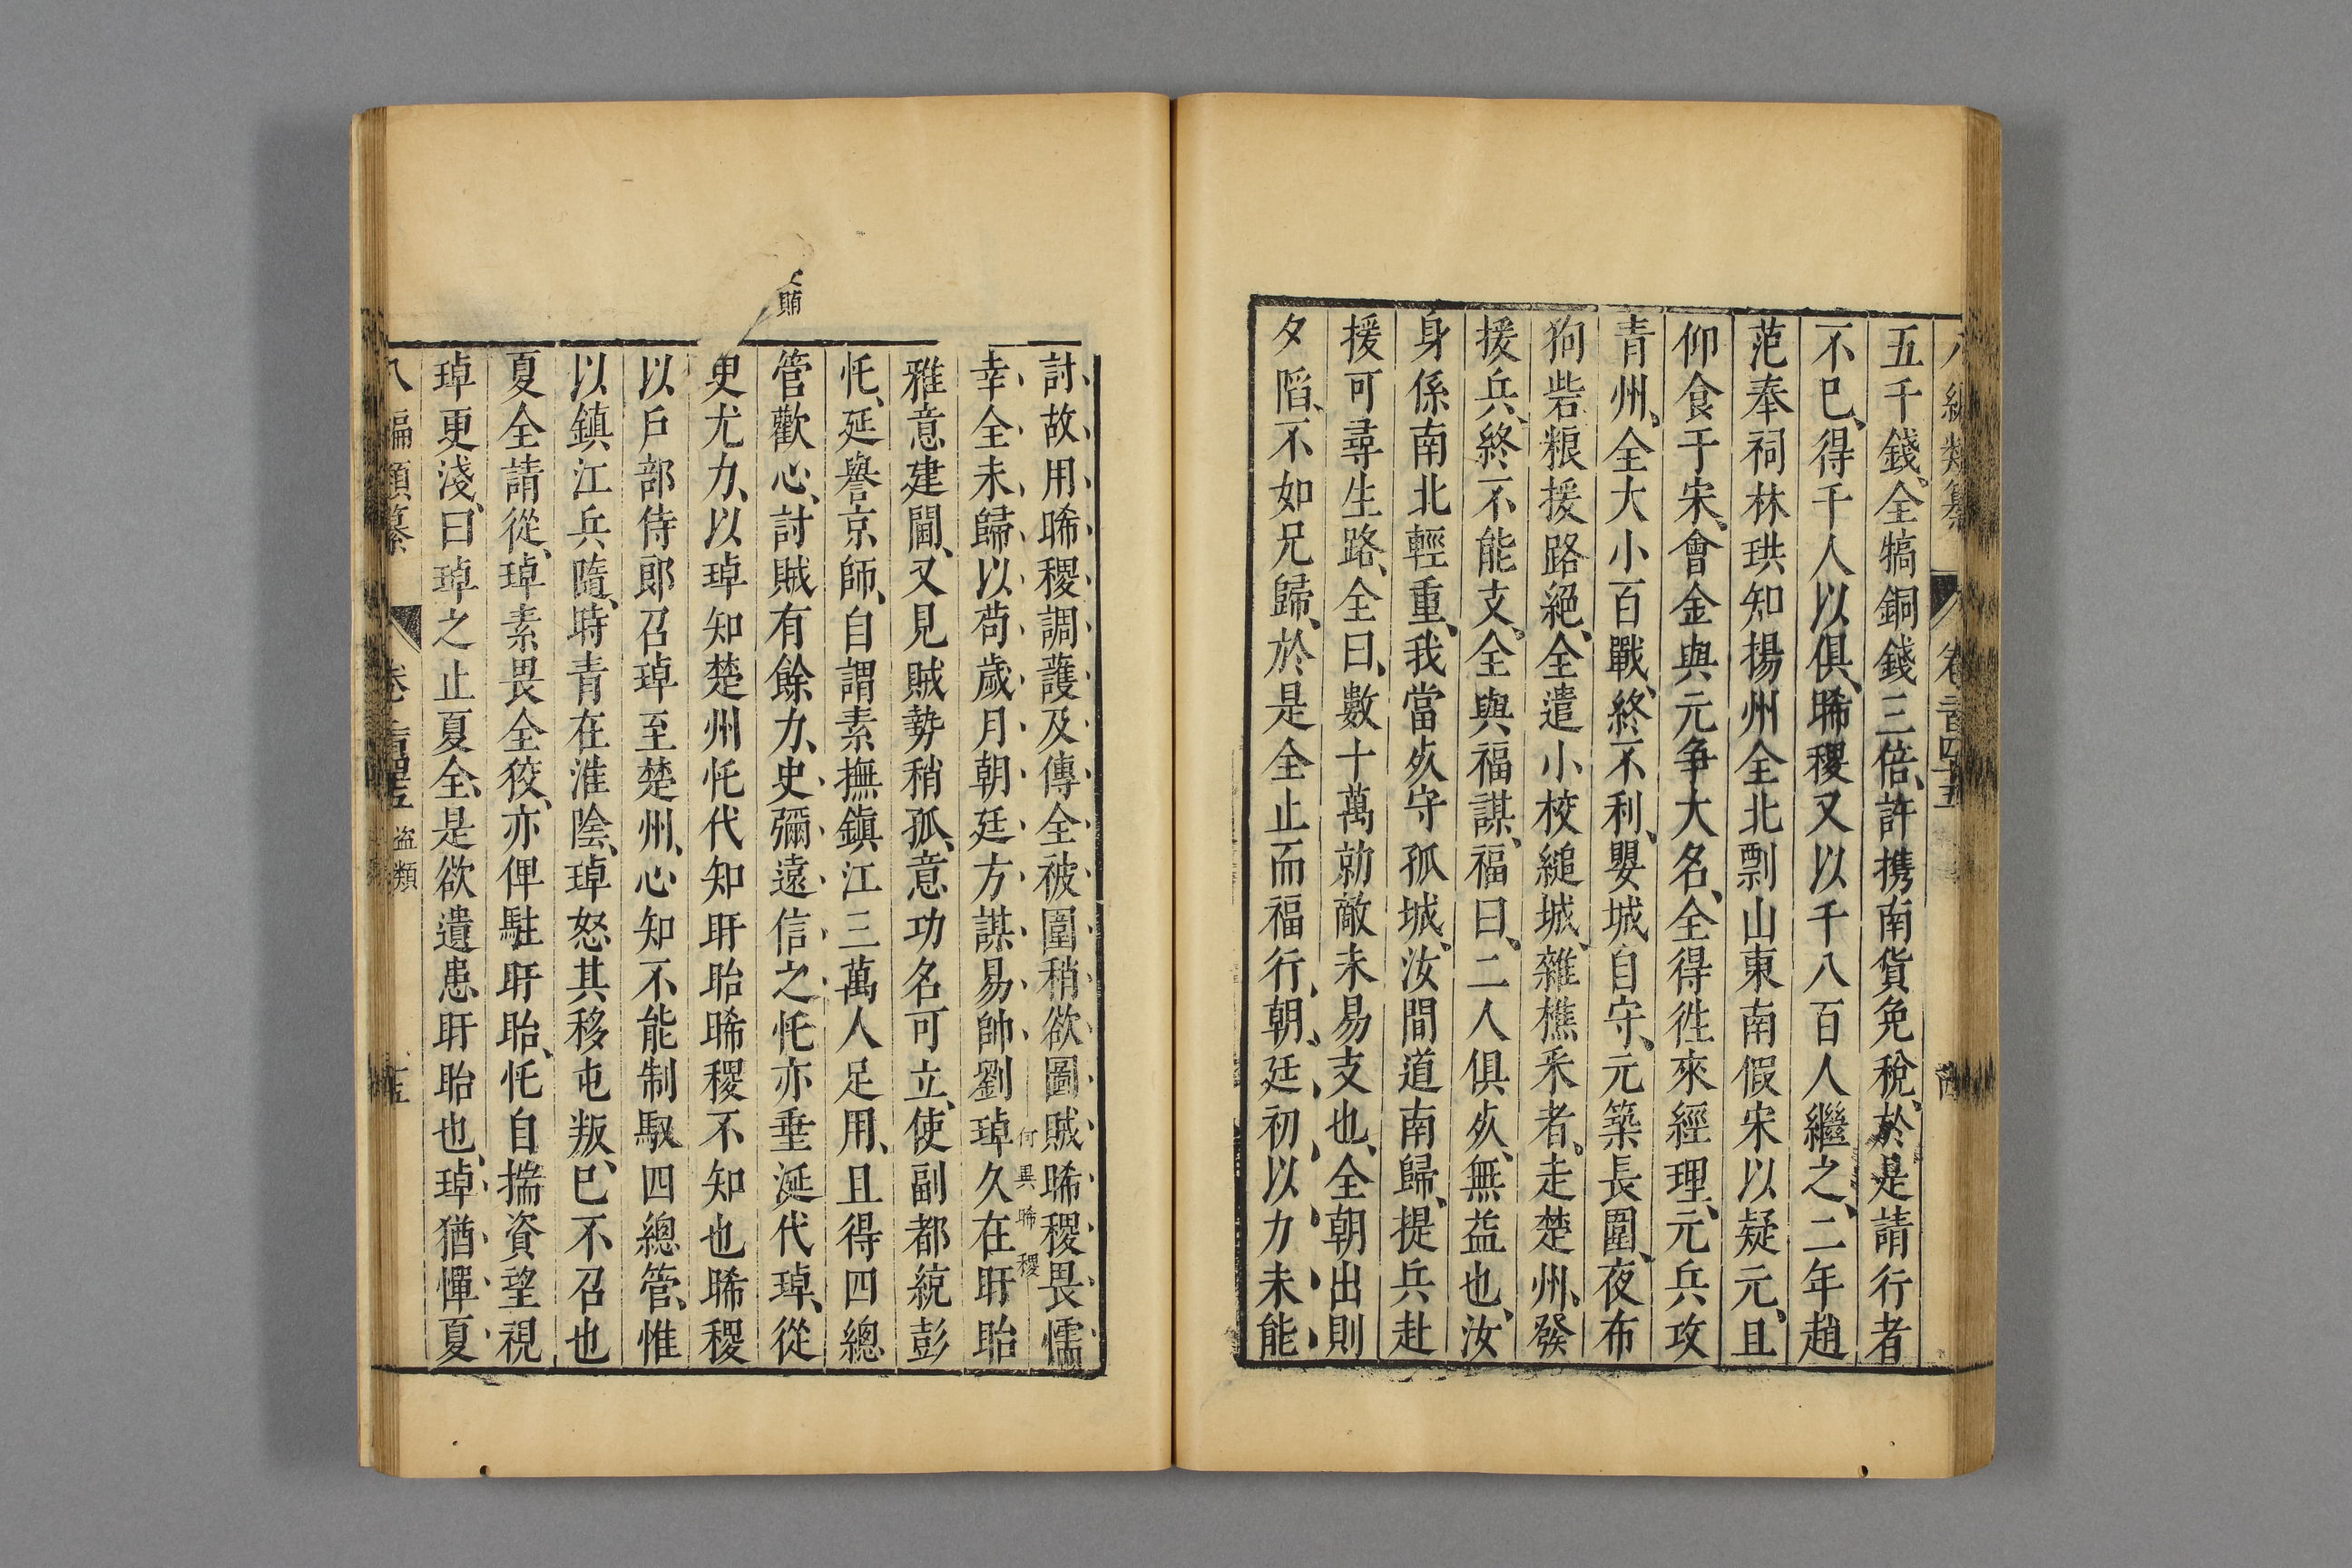 五千錢、全犒銅錢三倍、許携南貨免稅、於是請行者
不巳、得千人以俱、晞稷又以千八百人繼之、二年趙
范奉祠林珙知揚州全北剽山東南假宋以疑元、且
仰食于宋、會金與元爭大名、全得徃來經理、元兵攻
青州、全大小百戰、終不利、嬰城自守、元築長圍、夜布
狗砦粮援路絕、全遣小校縋城、雜樵釆者。走楚州、發
援兵、終不能支、全與福謀、福曰、二人俱㱙、無益也、汝
身係南北輕重、我當㱙守孤城、汝間道南歸、提兵赴
援可尋生路、全曰、數十萬勍敵未易支也、全朝出則
夕䧟、不如兄歸、於是全止而福行、朝廷初以力未能
討故用晞稷調護及傳全被圍稍欲圖賊晞稷畏懦
何異晞稷
幸全未歸以苟歲月朝廷方謀易帥劉琸久在盱眙
雅意建閫、又見賊勢稍孤、意功名可立、使副都統彭
忹、延譽京師、自謂素撫鎭江三萬人足用、且得四總
管歡心、討賊有餘力、史彌遠信之忹亦垂涎代琸、從
史尤力、以琸知楚州忹代知盱眙晞稷不知也晞稷
以戶部侍郎召琸至楚州、心知不能制馭四總管、惟
以鎮江兵隨、時青在淮陰、琸怒其移屯叛、巳不召也
夏全請從、琸素畏全狡、亦俾駐盱眙、忹自揣資望視
琸更淺、曰琸之止夏全、是欲遺患盱眙也、琸猶憚夏
盜類